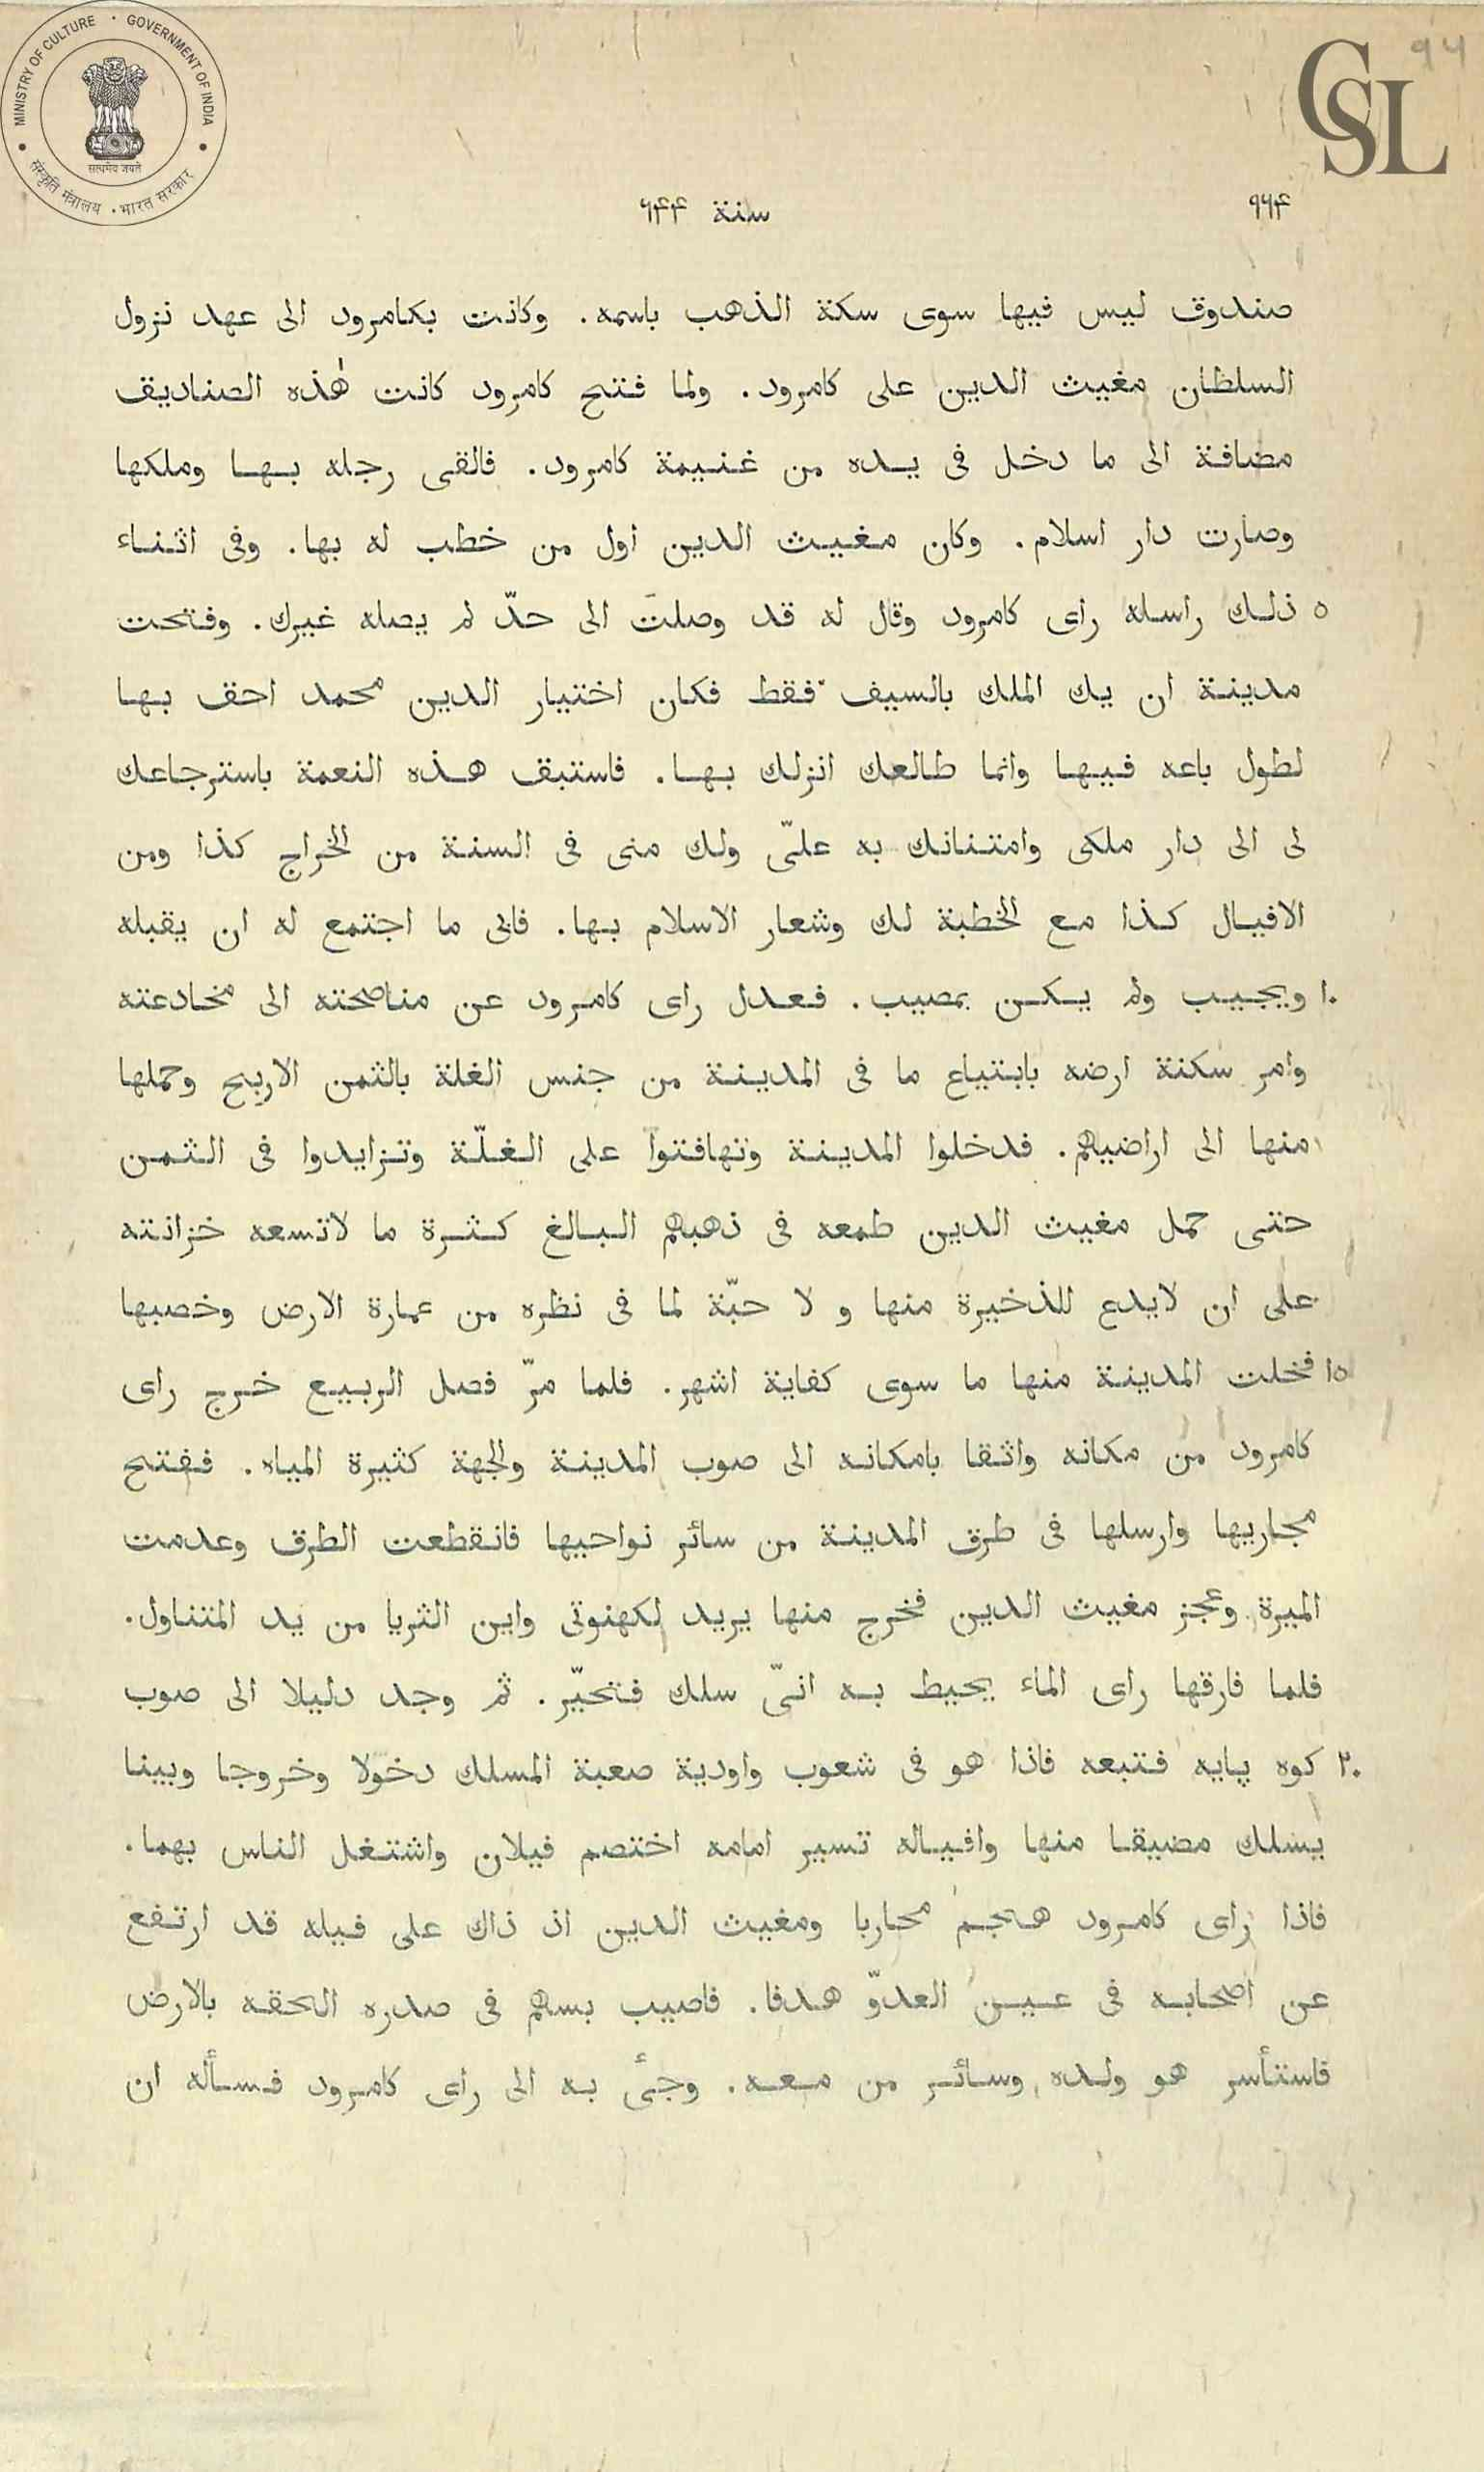 MINISTRY OF CULTURE · GOVERNMENT OF INDIA
सत्यमेव जयते
संस्कृति मंत्रालय · भारत सरकार
CSL
९६४ سنة ٦٤٤
صندوق ليس فيها سوى سكة الذهب باسمه. وكانت بكامرود الى عهد نزول
السلطان مغيث الدين على كامرود. ولما فتح كامرود كانت هٰذه الصناديق
مضافة الى ما دخل فى يده من غنيمة كامرود. فالقى رجله بها وملكها
وصارت دار اسلام. وكان مغيث الدين اول من خطب له بها. وفى اثناء
٥ ذلك راسله راى كامرود وقال له قد وصلتَ الى حدّ لم يصله غيرك. وفتحت
مدينة ان يك الملك بالسيف فقط فكان اختيار الدين محمد احق بها
لطول باعه فيها وانما طالعك انزلك بها. فاستبق هذه النعمة باسترجاعك
لى الى دار ملكى وامتنانك به علىّ ولك منى فى السنة من الخراج كذا ومن
الافيال كذا مع الخطبة لك وشعار الاسلام بها. فابى ما اجتمع له ان يقبله
١٠ ويجيب ولم يكن بمصيب. فعدل راى كامرود عن مناصحته الى مخادعته
وامر سكنة ارضه بابتياع ما فى المدينة من جنس الغلة بالثمن الاربح وحملها
منها الى اراضيهم. فدخلوا المدينة وتهافتوا على الغلّة وتزايدوا فى الثمن
حتى حمل مغيث الدين طمعه فى ذهبهم البالغ كثرة ما لاتسعه خزانته
على ان لايدع للذخيرة منها و لا حبّة لما فى نظره من عمارة الارض وخصبها
١٥ فخلت المدينة منها ما سوى كفاية اشهر. فلما مرّ فصل الربيع خرج راى
كامرود من مكانه واثقا بامكانه الى صوب المدينة والجهة كثيرة المياه. ففتح
مجاريها وارسلها فى طرق المدينة من سائر نواحيها فانقطعت الطرق وعدمت
الميرة وعجز مغيث الدين فخرج منها يريد لكهنوتى واين الثريا من يد المتناول.
فلما فارقها راى الماء يحيط به انىّ سلك فتحيّر. ثم وجد دليلا الى صوب
٢٠ كوه پايه فتبعه فاذا هو فى شعوب واودية صعبة المسلك دخولا وخروجا وبينا
يسلك مضيقا منها وافياله تسير امامه اختصم فيلان واشتغل الناس بهما.
فاذا راى كامرود هجم محاربا ومغيث الدين اذ ذاك على فيله قد ارتفع
عن اصحابه فى عين العدوّ هدفا. فاصيب بسهم فى صدره الحقه بالارض
فاستأسر هو ولده وسائر من معه. وجىٔ به الى راى كامرود فسأله ان